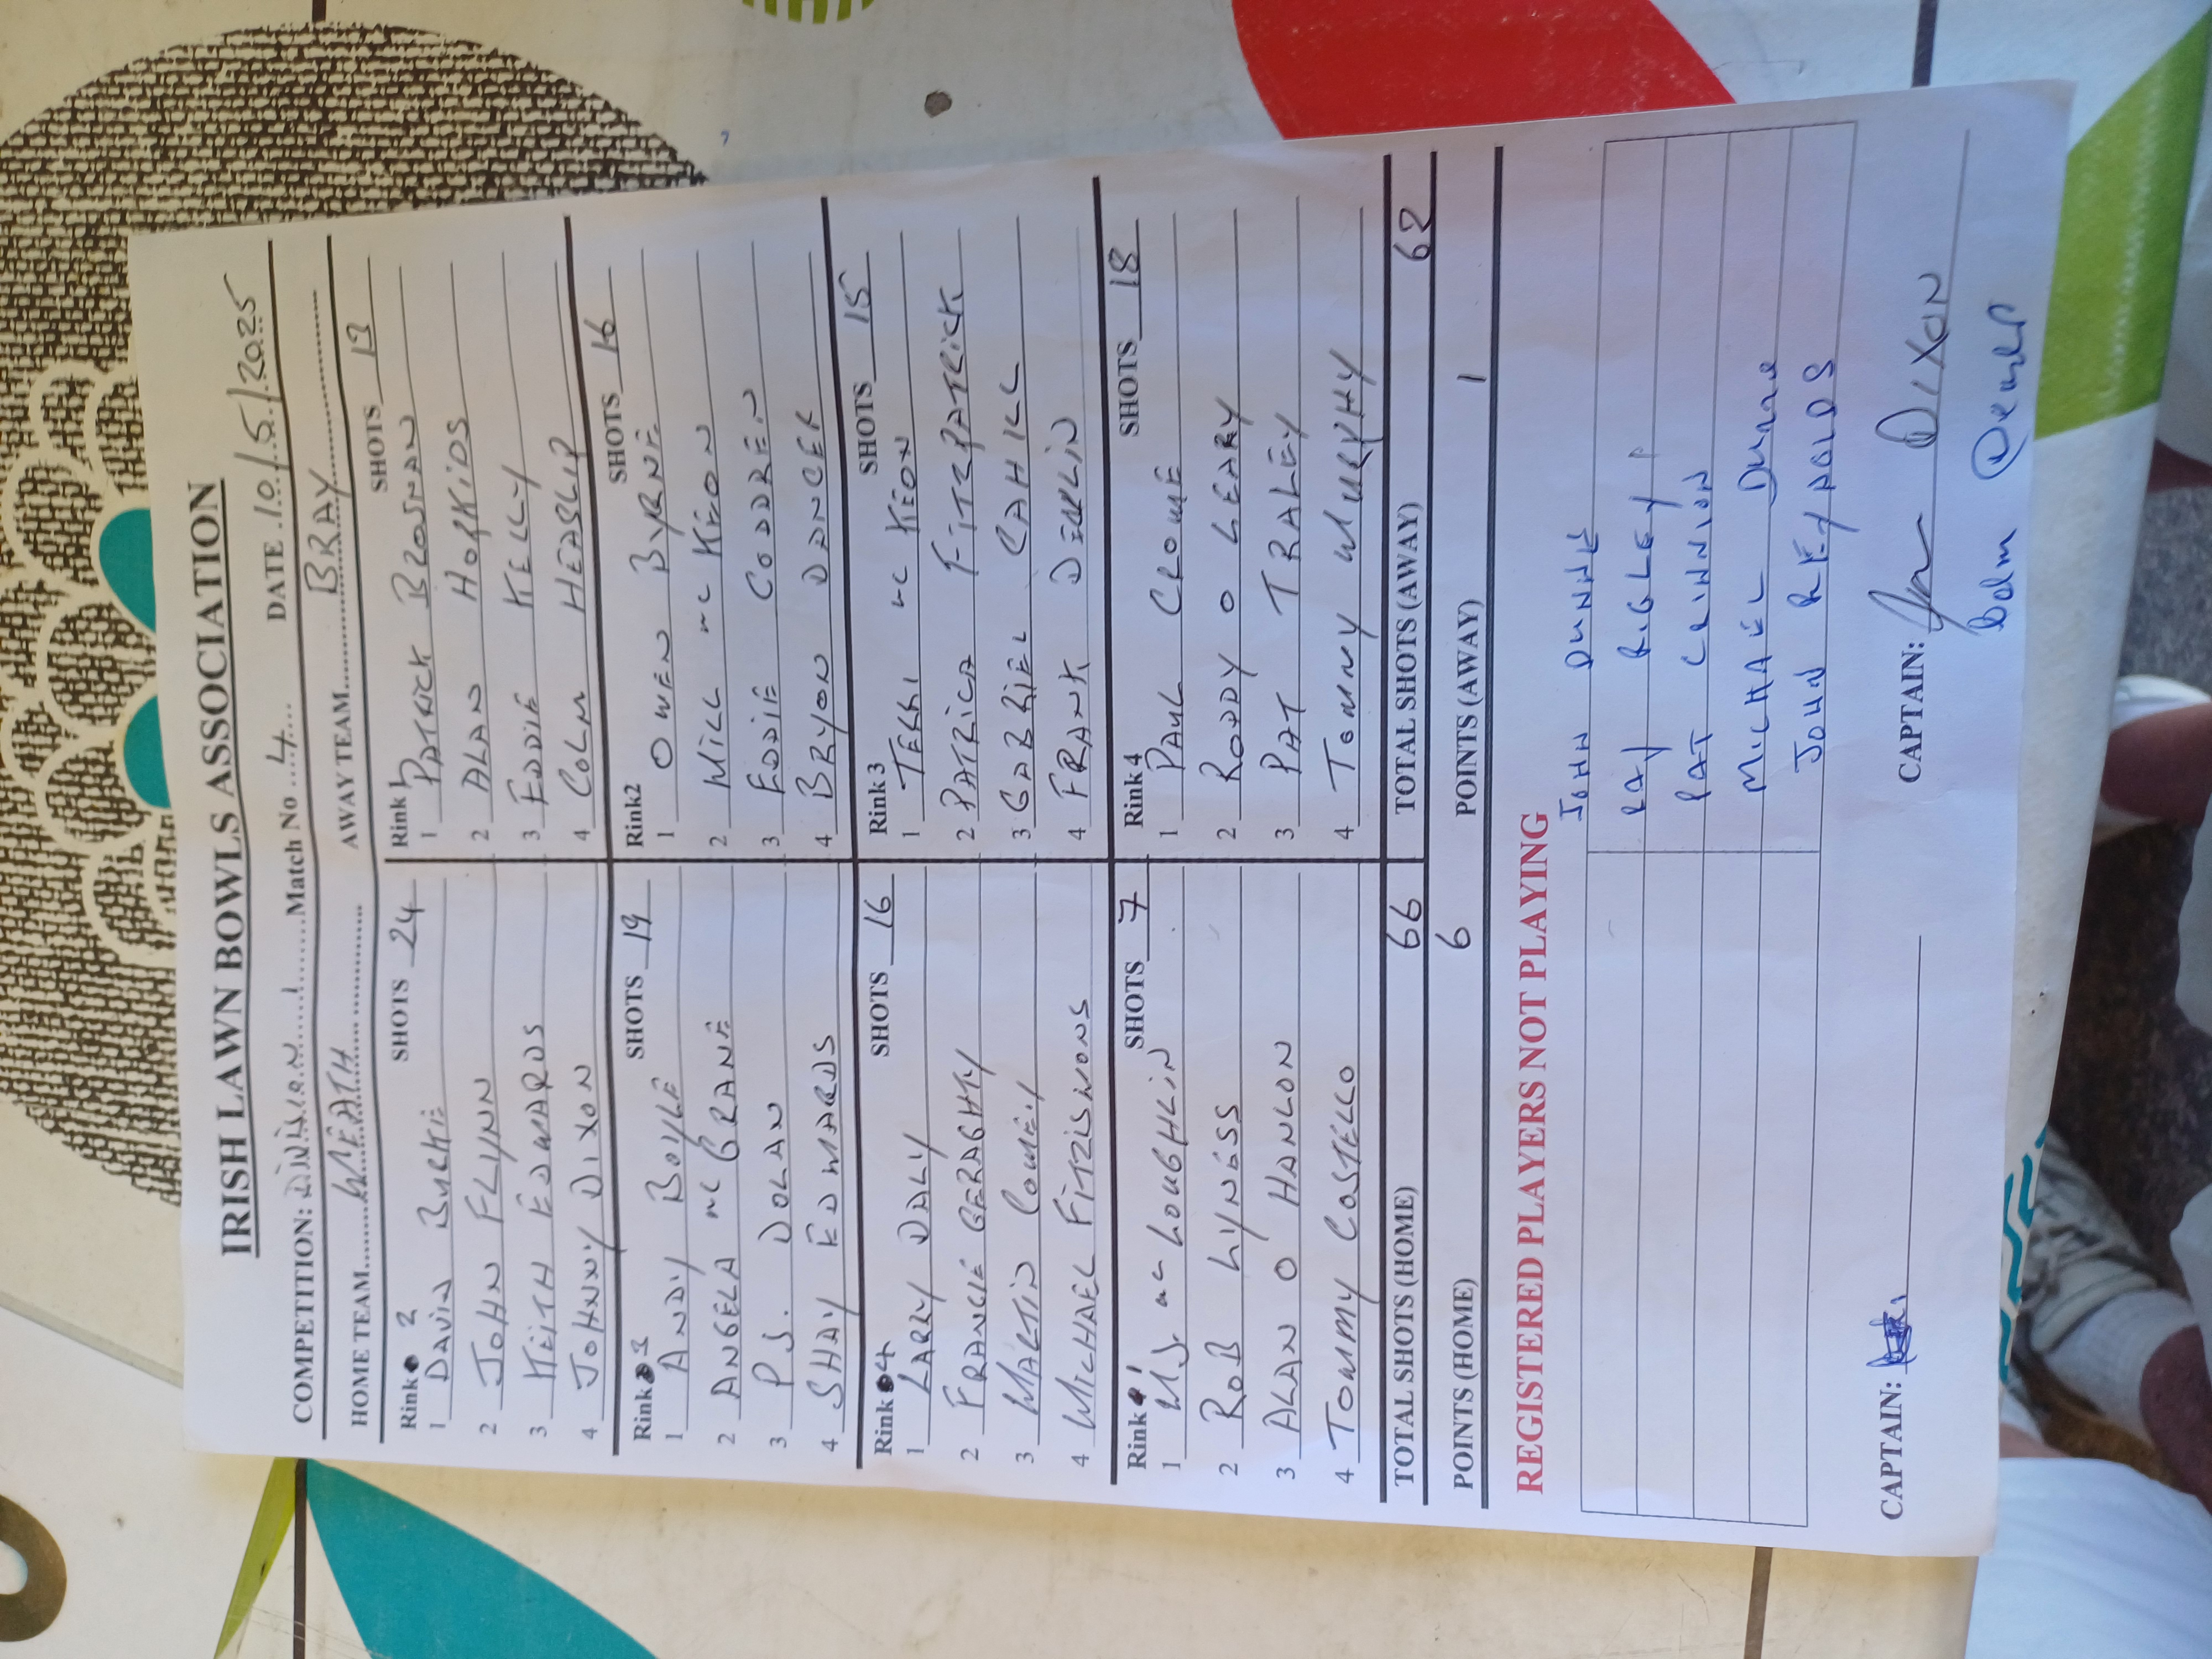 IRISH LAWN BOWLS ASSOCIATION
COMPETITION: DIVISION 1 Match No 4 DATE 10/5/2025
HOME TEAM MEATH AWAY TEAM BRAY
SHOTS 24 SHOTS 13
Rink 2 Rink 1
1 DAVID BURKE 1 PATRICK BROSNAN
2 JOHN FLYNN 2 ALAN HOPKINS
3 KEITH EDWARDS 3 EDDIE KELLY
4 JOHNNY DIXON 4 COLM HEASLIP
SHOTS 19 SHOTS 16
Rink 3 Rink2
1 ANDY BOYLE 1 OWEN BYRNE
2 ANGELA Mc GRANE 2 Mc KEON
3 P.J. DOLAN 3 EDDIE CODDREN
4 SHAY EDWARDS 4 BRYON DANCER
SHOTS 16 SHOTS 15
Rink 4 Rink 3
1 LARRY DALY 1 TERRI Mc KEON
2 FRANCIE GERAGHTY 2 PATRICA FITZPATRICK
3 MARTIN COMEY 3 GABRIEL CAHILL
4 MICHAEL FITZISMONS 4 FRANK DEVLIN
SHOTS 7 SHOTS 18
Rink 1 Rink 4
1 MJ Mc LOUGHLIN 1 PAUL CROWE
2 ROB LYNESS 2 RODDY O LEARY
3 ALAN O HANLON 3 PAT TRALEY
4 TOMMY COSTELLO 4 TOMMY MURPHY
TOTAL SHOTS (HOME) 66 TOTAL SHOTS (AWAY) 62
POINTS (HOME) 6 POINTS (AWAY) 1
REGISTERED PLAYERS NOT PLAYING
JOHN DUNNE
RAY RIGLEY
PAT CRINNION
MICHAEL DUNNE
JOHN REYNOLDS
CAPTAIN: CAPTAIN: DIXON